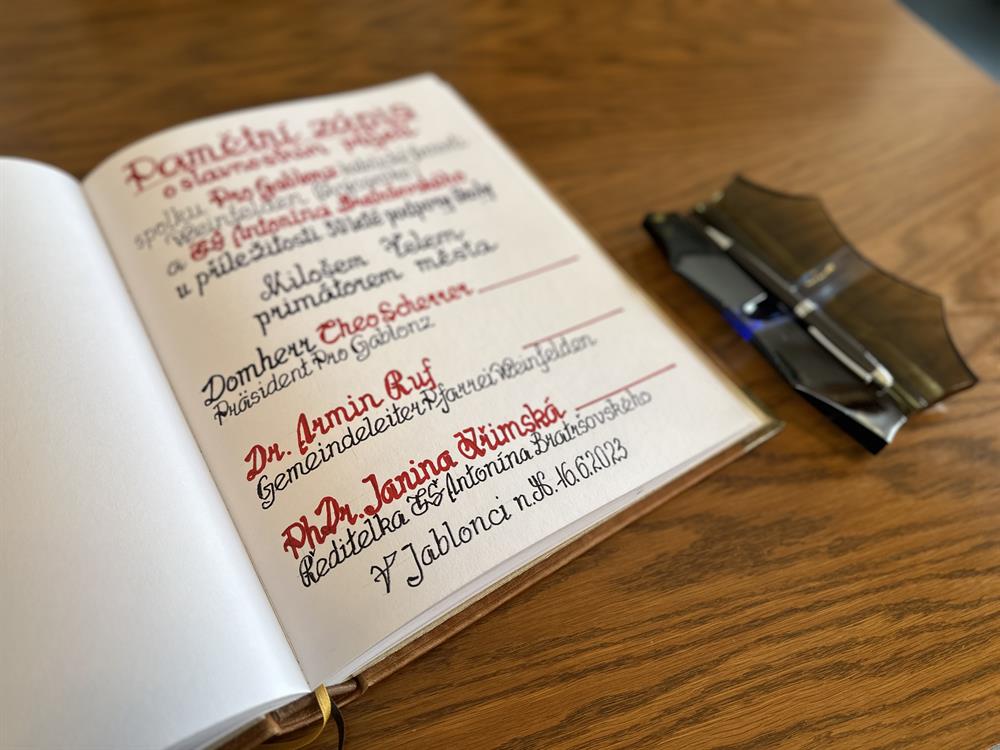 Pamětní zápis
o slavnostním přijetí
Pro Gablonz
spolku Weinfelden
a ZŠ Antonína Bratršovského
u příležitosti 30 let podpory školy
Milošem Velem
primátorem města
Domherr Theo Scherrer
Präsident Pro Gablonz
Dr. Armin Ruf
Gemeindeleiter Pfarrei Weinfelden
PhDr. Janina Křimská
Ředitelka ZŠ Antonína Bratršovského
V Jablonci n.N. 16.6.2023